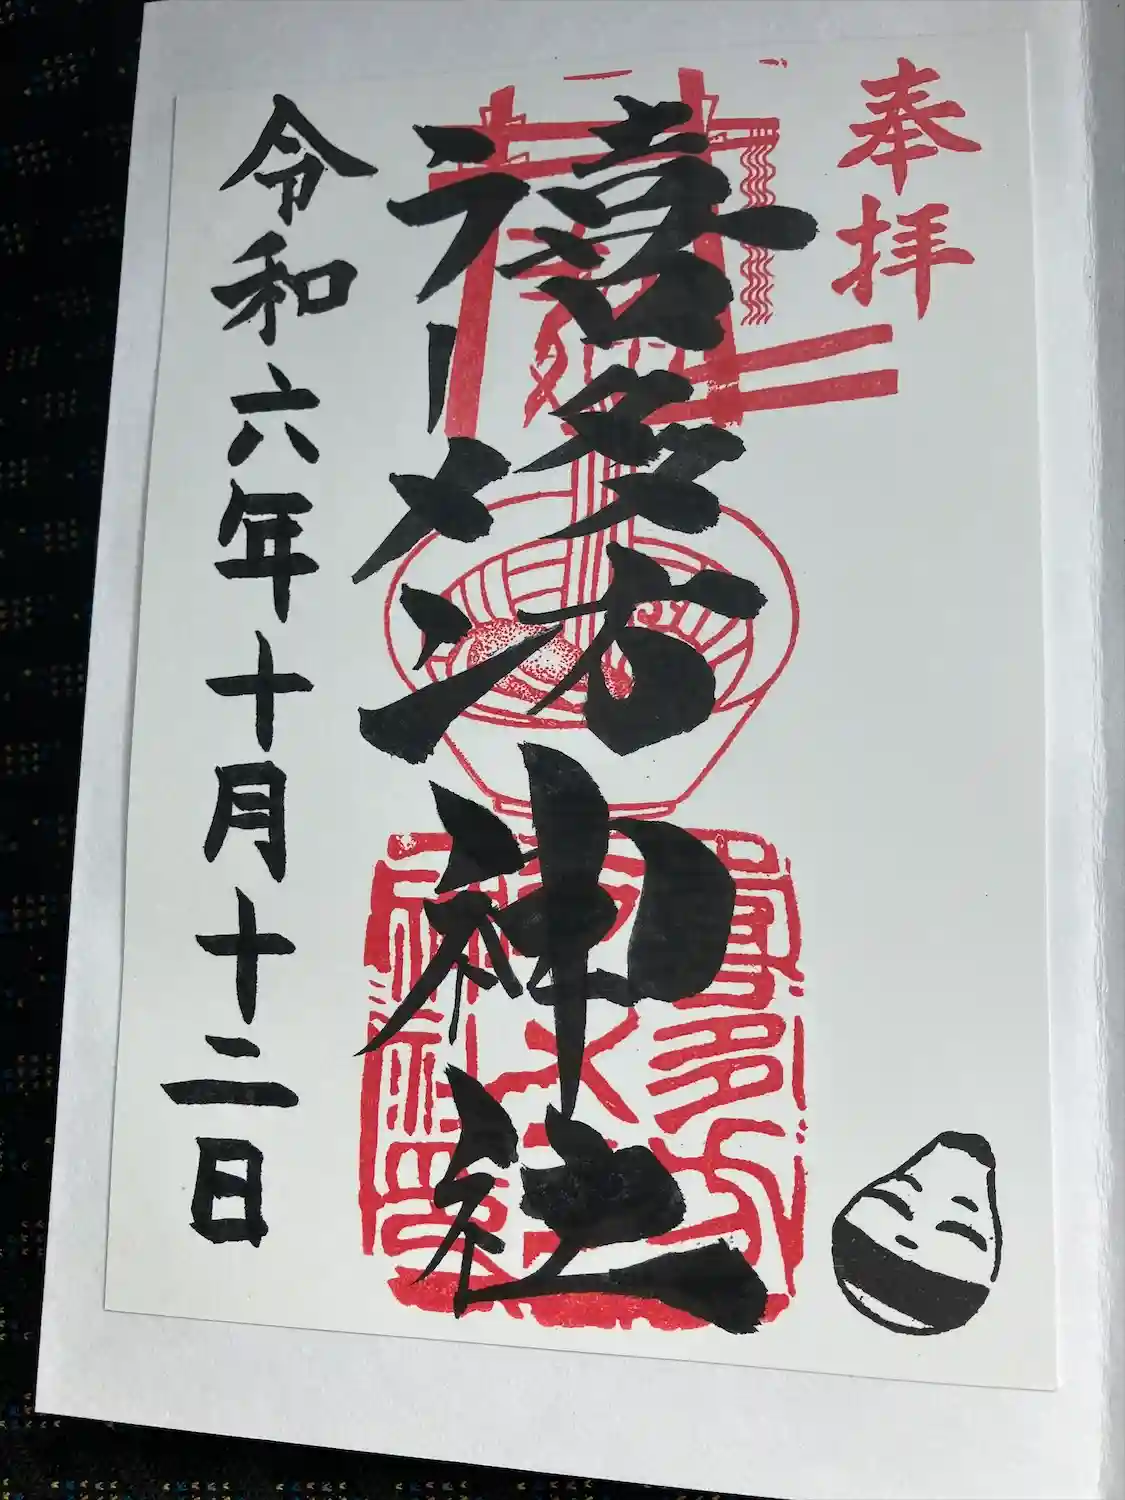 奉拝
喜多方
ラーメン
神社
令和六年十月十二日